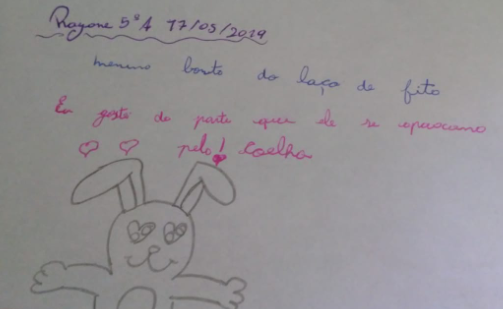 Rayane 5º A 17/05/2019
menina bonita do laço de fita
Eu goste da parte que ele se apaixona
pelo! Coelha